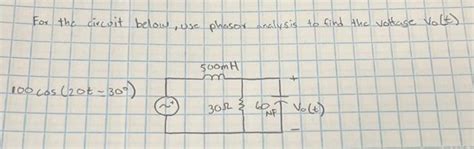 For the circuit below, use phasor analysis to find the voltage Vo(t)
500mH
100cos(20t-30°)
30Ω
NF
Vo(t)
+
-